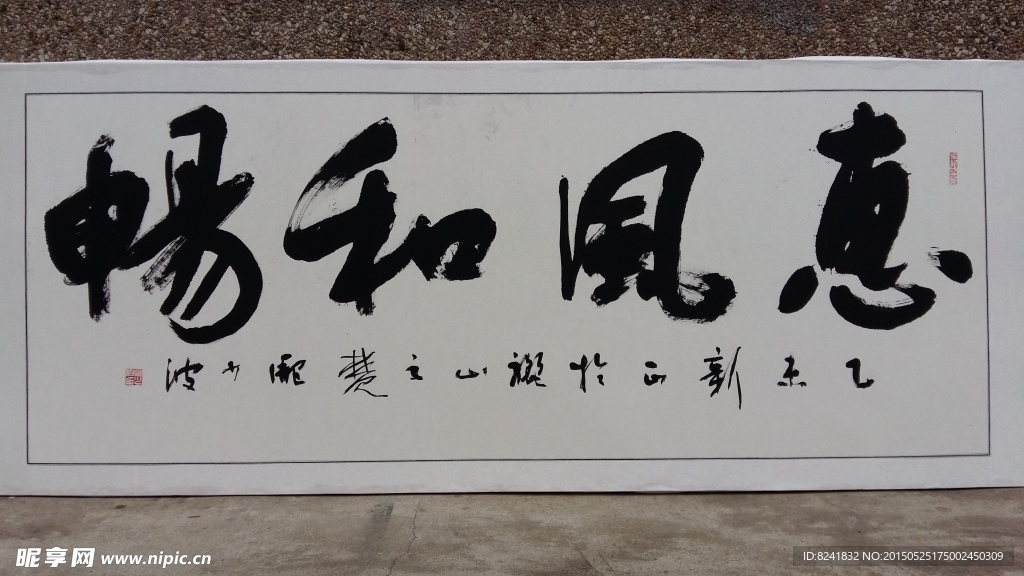 惠風和暢
乙未新正於礙山之麓龍少波
昵享网 www.nipic.cn
ID:8241832 NO:20150525175002450309